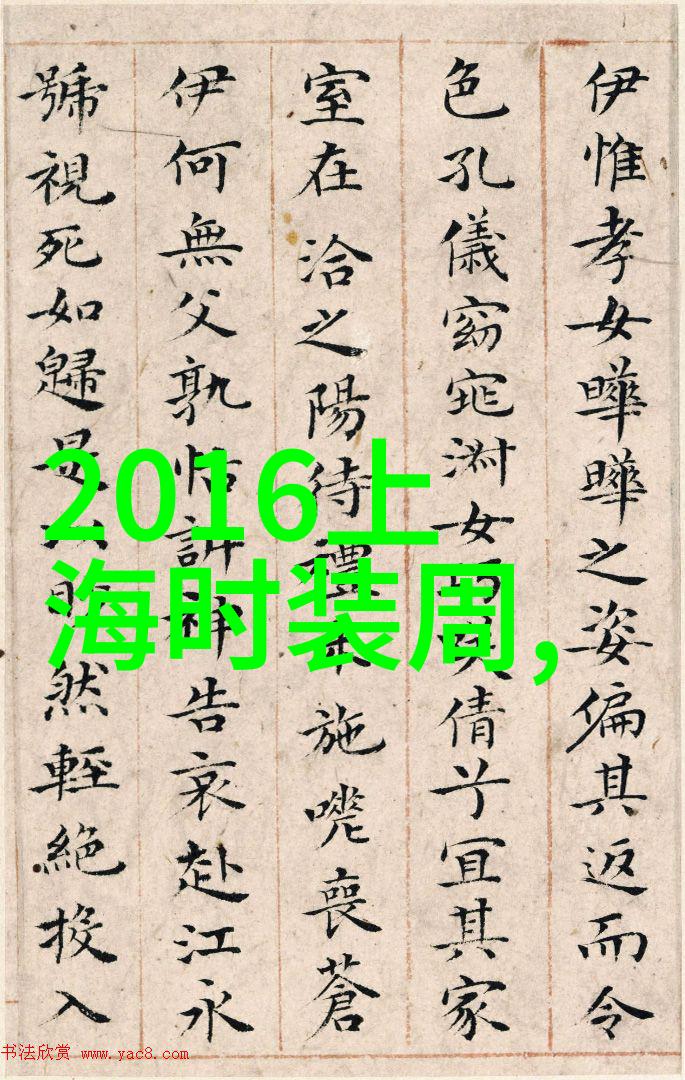 伊惟孝女曄曄之姿偏其返而令
色孔儀窈窕淑女巧笑倩兮宜其家
室在洽之陽待禮未施嗟喪蒼
伊何無父孰怙訴神告哀赴江永
號視死如歸是以眇然輕絕投入
2016上
海时装周,
书法欣赏 www.yac8.com